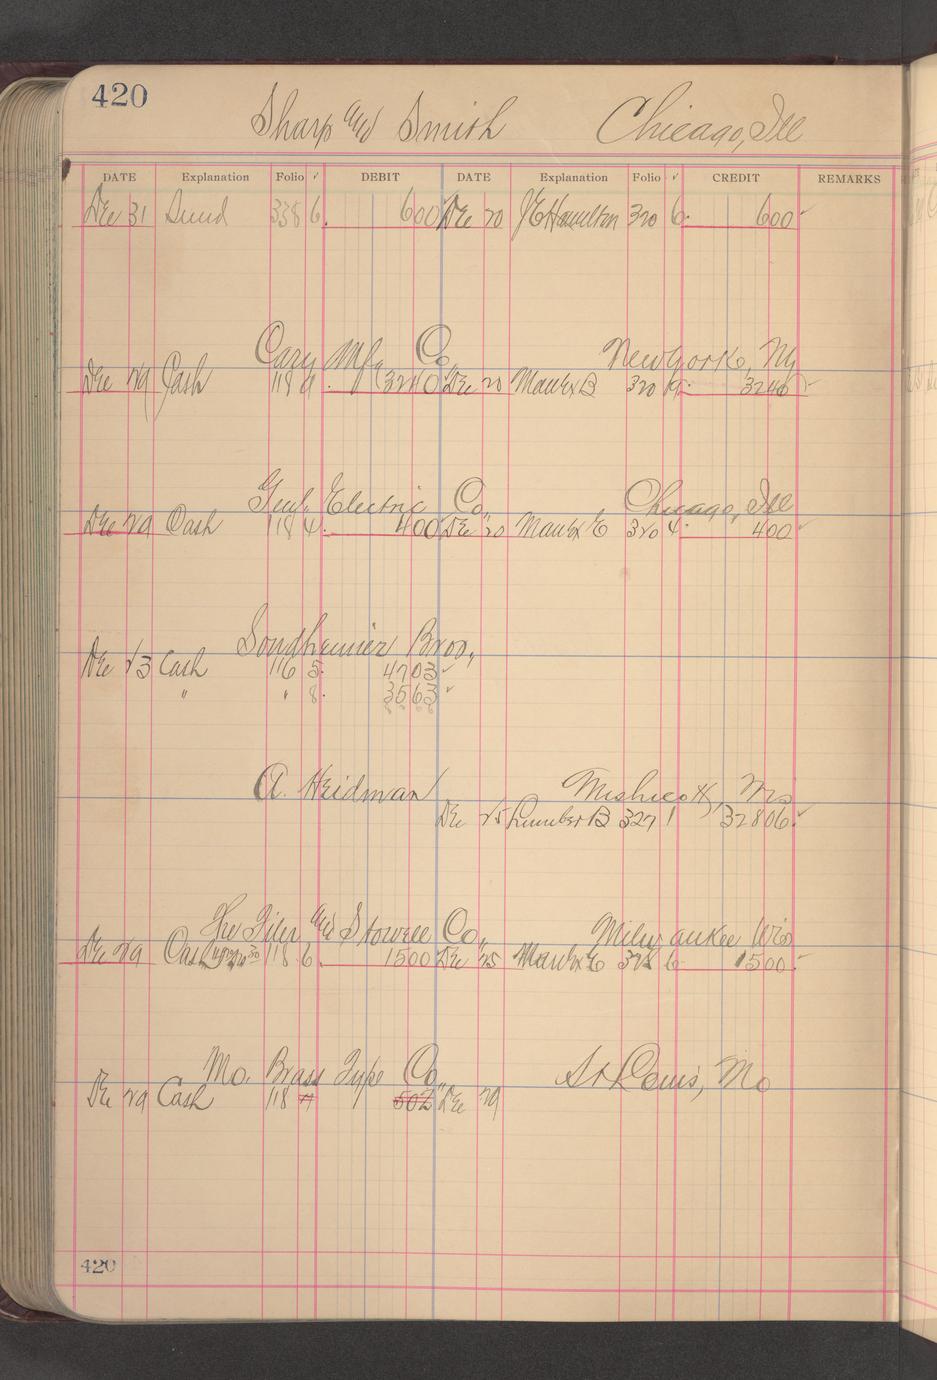 420
Sharp and Smith Chicago, Ill
DATE Explanation Folio ✓ DEBIT DATE Explanation Folio ✓ CREDIT REMARKS
Dec 31 Sund 338 6 600 Dec 20 J E Hamilton 320 6 600 ✓
Cary Mfg Co., New York, Ny
Dec 29 Cash 118 9 3240 Dec 20 Man Ex B 320 3240 ✓
Genl. Electric Co., Chicago, Ill
Dec 29 Cash 118 4 400 Dec 20 Man Ex E 320 4 400 ✓
Sondheimer Bros.,
Dec 23 Cash 116 5 4703 ✓
" " 8 3563 ✓
A. Heidman Mishicott, Wis
Dec 25 Lumber B 327 1 32806 ✓
The Filer and Stowell Co., Milwaukee Wis
Dec 29 Cash 118 6 1500 Dec 25 Man Ex E 328 6 1500 ✓
Mo. Brass Type Co., St Louis, Mo
Dec 29 Cash 118 502 Dec 29
420